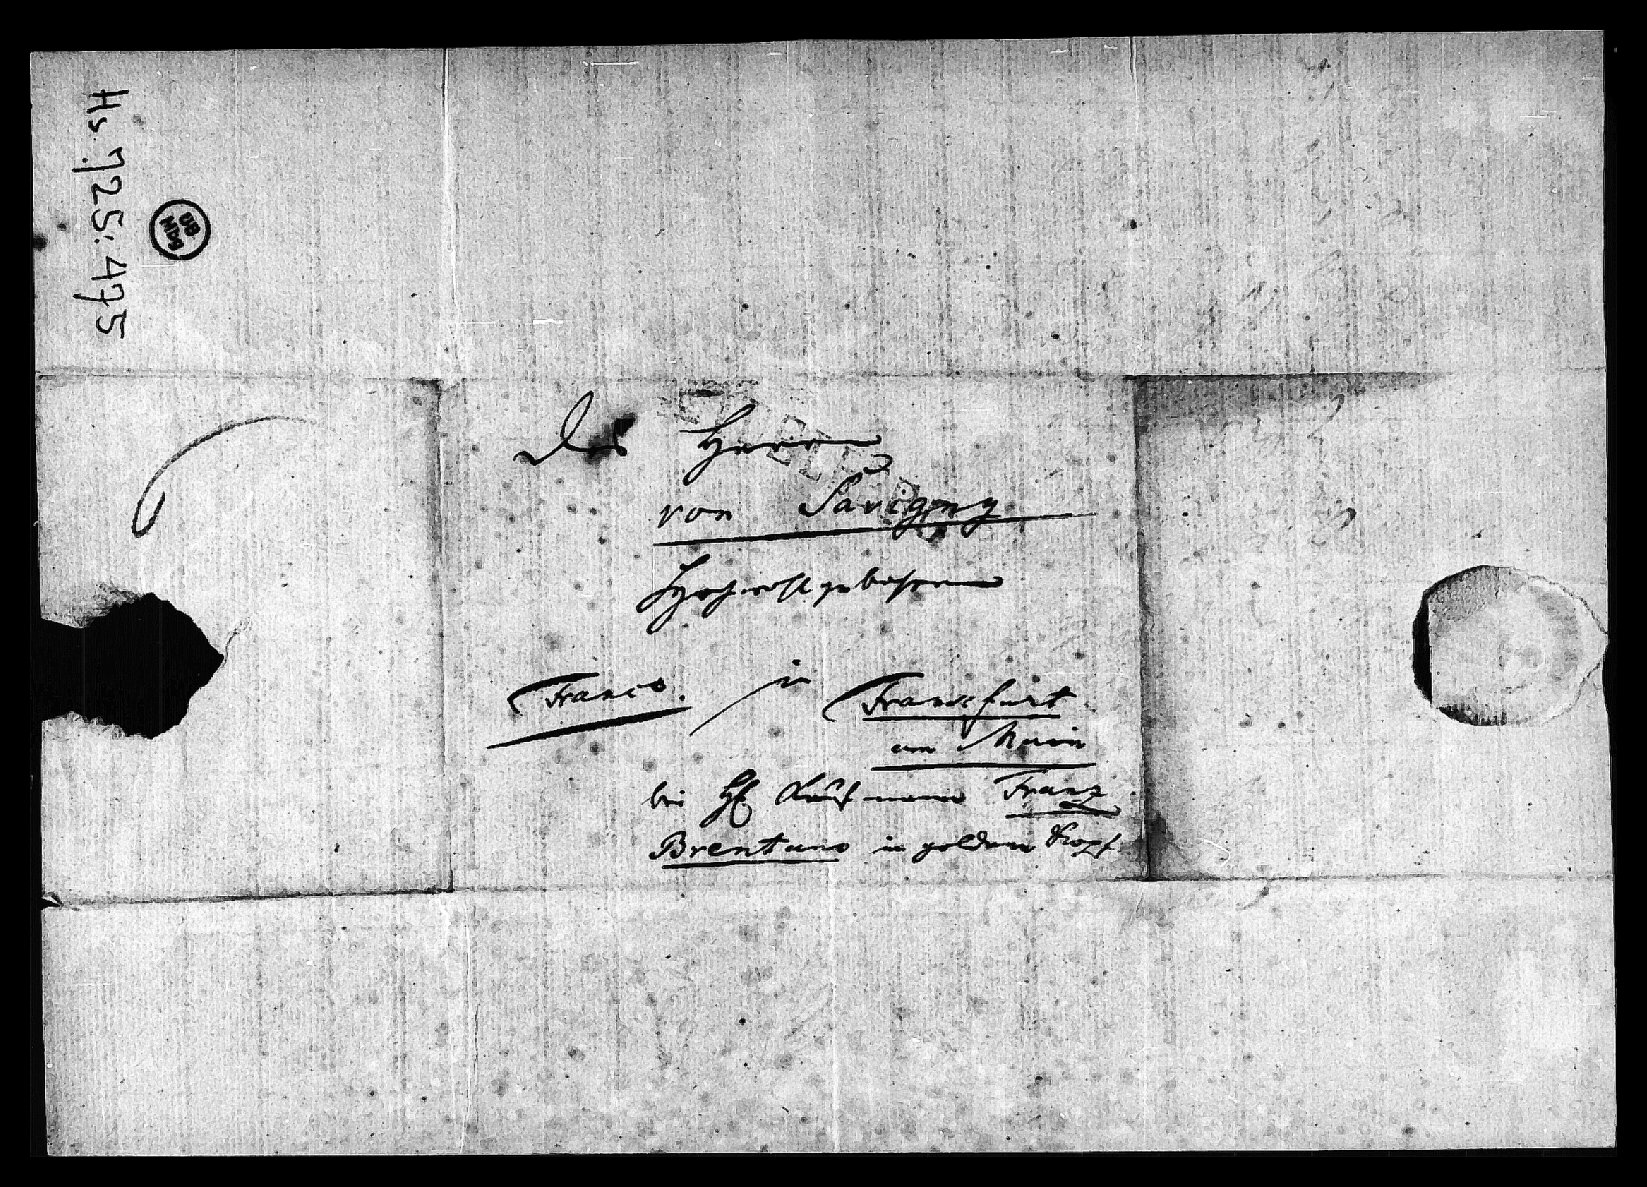 Hs. 725:475
UB Mbg
Des Herrn
von Savigny
Hochwohlgebohren
Franco. in Franckfurt
am Main
bei H Kaufmann Franz
Brentano in goldnen Kopf